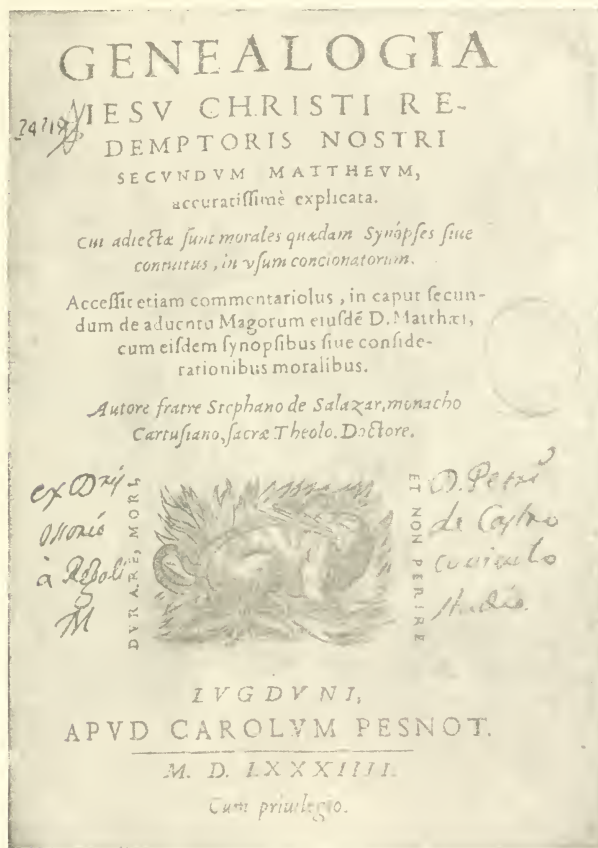 GENEALOGIA
IESV CHRISTI RE-
DEMPTORIS NOSTRI
SECVNDVM MATTHEVM,
accuratiſſimè explicata.
Cui adiectæ ſunt morales quædam Synópſes ſiue
contuitus, in vſum concionatorum.
Acceſſit etiam commentariolus, in caput ſecun-
dum de aduentu Magorum eiuſdē D. Matthæi,
cum eiſdem ſynopſibus ſiue conſide-
rationibus moralibus.
Autore fratre Stephano de Salazar, monacho
Cartuſiano, ſacræ Theolo. Doctore.
DVRARE, MORI,
ET NON PERIRE
ex
à
D. Petri
de Caſtro
LVGDVNI,
APVD CAROLVM PESNOT.
M. D. LXXXIIII.
Cum priuilegio.